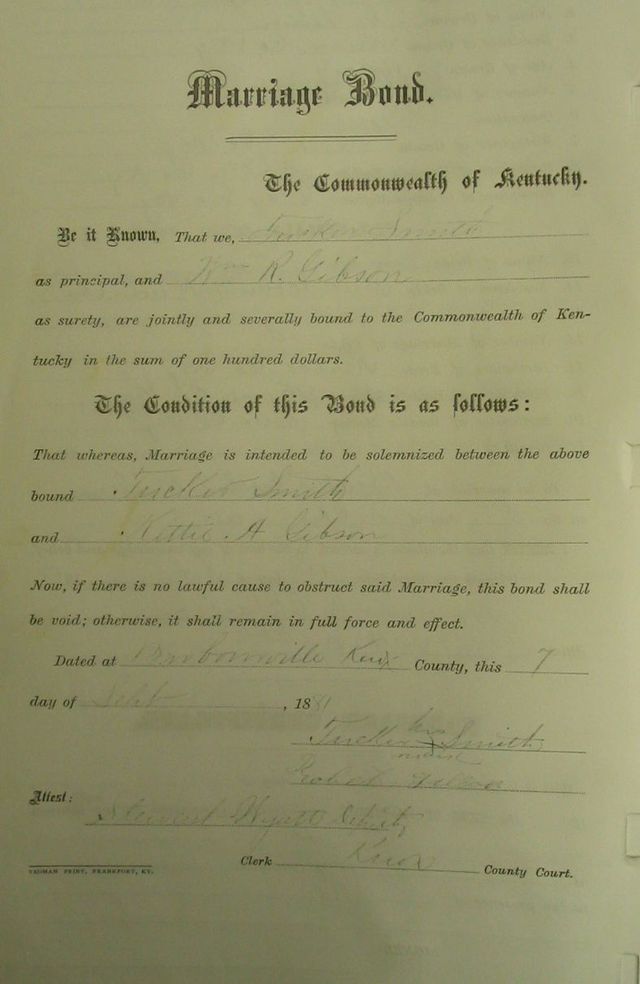 Marriage Bond.
The Commonwealth of Kentucky.
Be it Known, That we, Tucker Smith
as principal, and Wm R. Gibson
as surety, are jointly and severally bound to the Commonwealth of Ken-
tucky in the sum of one hundred dollars.
The Condition of this Bond is as follows:
That whereas, Marriage is intended to be solemnized between the above
bound Tucker Smith
and Nettie A Gibson
Now, if there is no lawful cause to obstruct said Marriage, this bond shall
be void; otherwise, it shall remain in full force and effect.
Dated at Barbourville Knox County, this 7
day of Sept, 1881
his
Tucker x Smith
mark
Attest:
Wyatt
Clerk Knox County Court.
YEOMAN PRINT, FRANKFORT, KY.